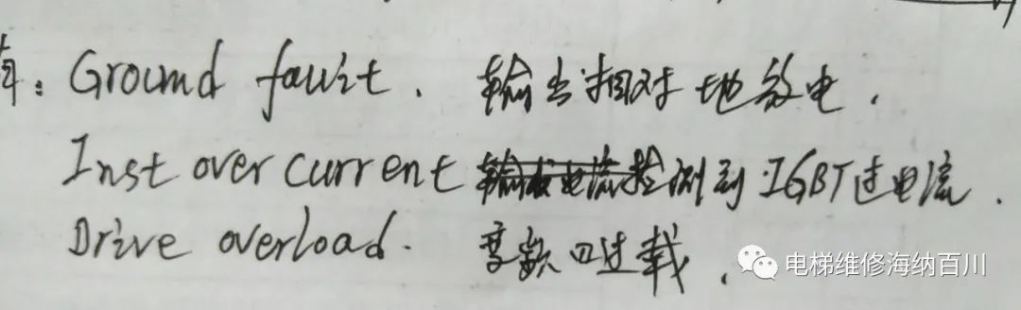 : Ground fault. 输出相对地放电.
Inst over current 检测到IGBT过电流.
Drive overload. 变频口过载.
电梯维修海纳百川